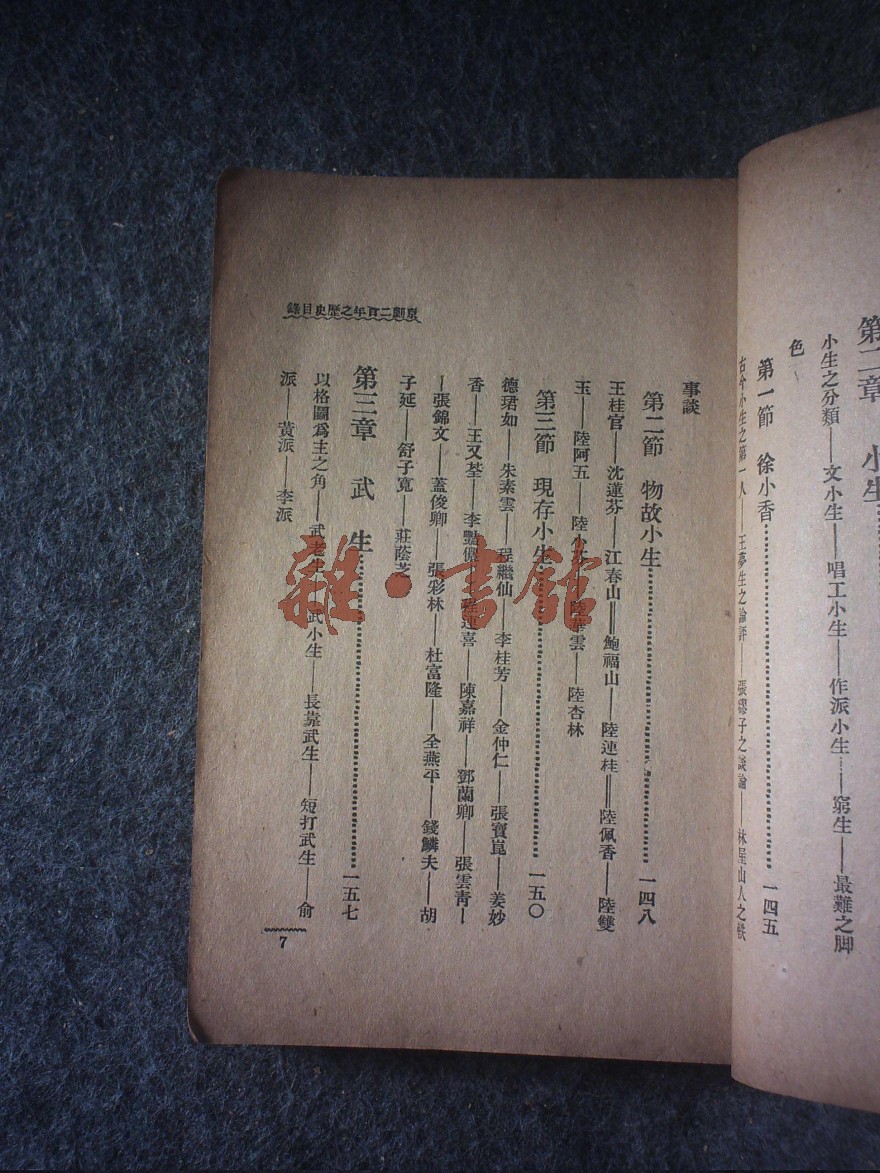 第二章　小生
小生之分類——文小生——唱工小生——作派小生——窮生——最難之脚
色
第一節　徐小香 一四五
古今小生之第一人——王夢生之論評——張繆子之談論　林屋山人之軼
事談
第二節　物故小生 一四八
王桂官——沈蓮芬——江春山——鮑福山——陸連桂——陸佩香——陸雙
玉——陸阿五——陸小芬——陸華雲——陸杏林
第三節　現存小生 一五〇
德珺如——朱素雲——程繼仙——李桂芳——金仲仁——張寶崑——姜妙
香——王又荃——李艷儂——程連喜——陳嘉祥——鄧蘭卿——張雲靑—
—張錦文——蓋俊卿——張彩林——杜富隆——全燕平——錢鱗夫——胡
子延——舒子寬——莊蔭芝
第三章　武　生 一五七
以格鬪爲主之角——武老生——武小生——長靠武生——短打武生——俞
派——黃派——李派
京劇二百年之歷史目錄
7
雜·書館